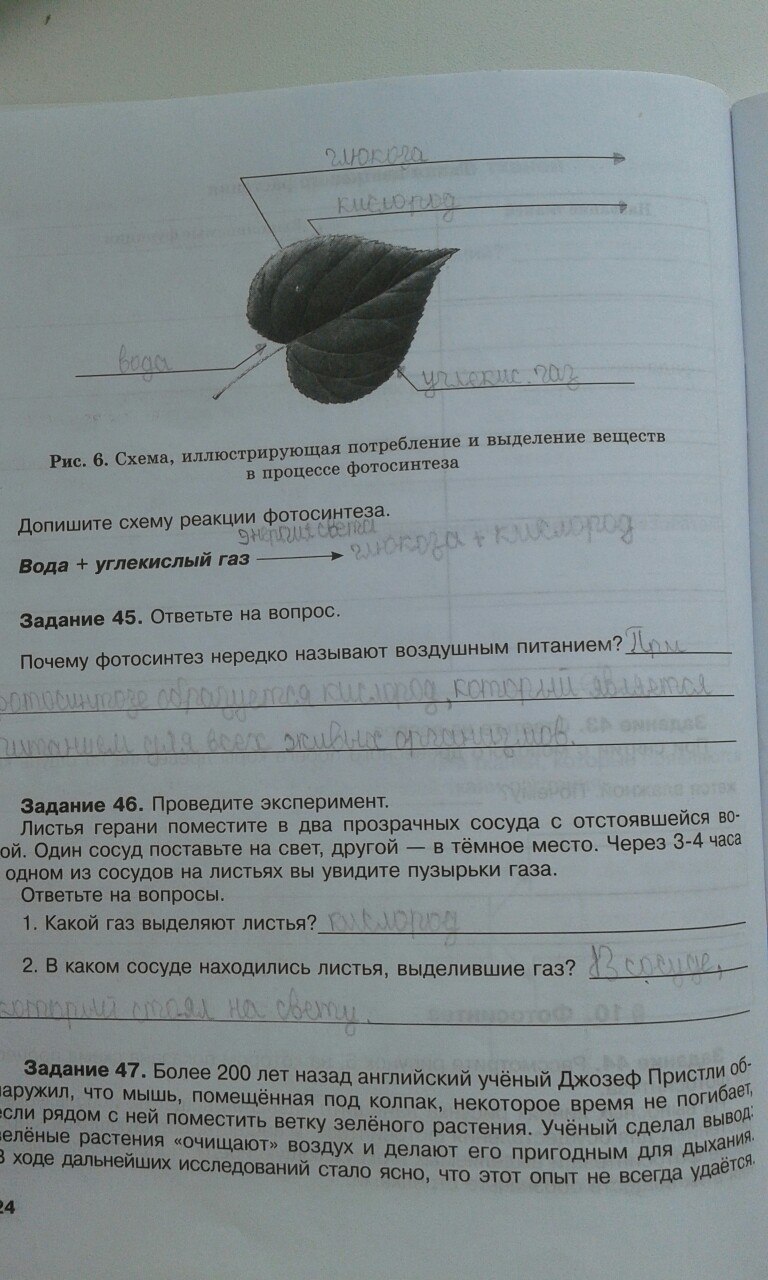 глюкоза
кислород
вода
углекис. газ
Рис. 6. Схема, иллюстрирующая потребление и выделение веществ
в процессе фотосинтеза
Допишите схему реакции фотосинтеза.
энергия света
Вода + углекислый газ глюкоза + кислород
Задание 45. Ответьте на вопрос.
Почему фотосинтез нередко называют воздушным питанием? При
фотосинтезе образуется кислород, который является
питанием для всех живых организмов.
Задание 46. Проведите эксперимент.
Листья герани поместите в два прозрачных сосуда с отстоявшейся во-
ой. Один сосуд поставьте на свет, другой — в тёмное место. Через 3-4 часа
одном из сосудов на листьях вы увидите пузырьки газа.
Ответьте на вопросы.
1. Какой газ выделяют листья? кислород
2. В каком сосуде находились листья, выделившие газ? В сосуде,
который стоял на свету.
Задание 47. Более 200 лет назад английский учёный Джозеф Пристли об-
наружил, что мышь, помещённая под колпак, некоторое время не погибает,
если рядом с ней поместить ветку зелёного растения. Учёный сделал вывод:
зелёные растения «очищают» воздух и делают его пригодным для дыхания.
В ходе дальнейших исследований стало ясно, что этот опыт не всегда удаётся.
24